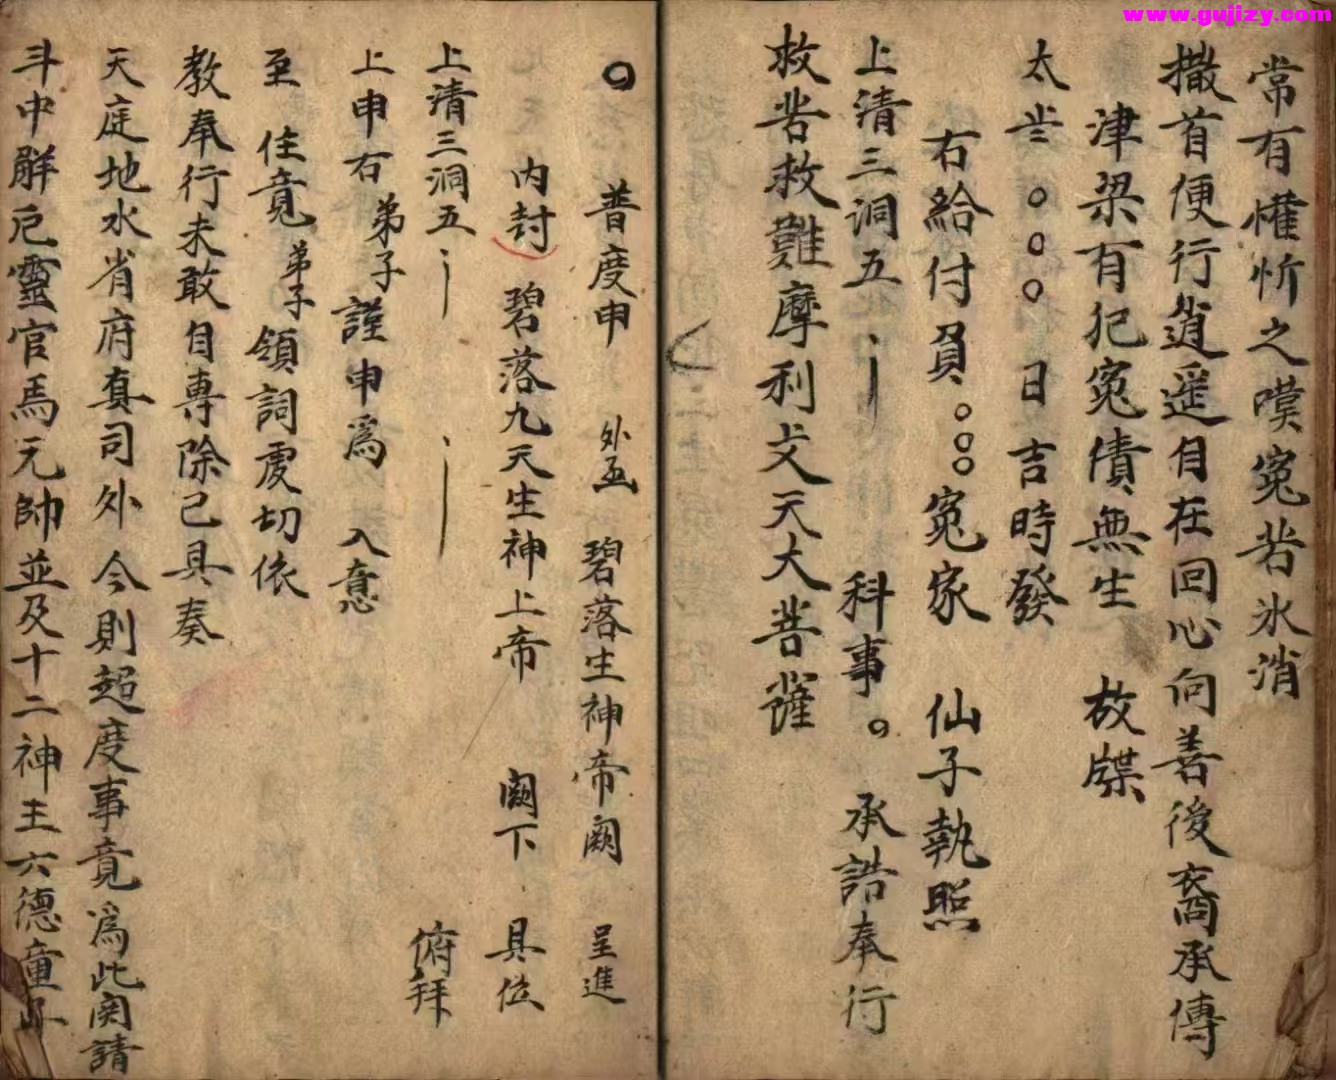 www.gujizy.com
常有懽忻之嘆寃若氷消
撒首便行逍遥自在回心向善後裔承傳
津梁有犯寃債無生 故牒
太歲 。。。日吉時發
右給付員。。。寃家 仙子執照
上清三洞五 科事。承誥奉行
救苦救難摩利支天大菩薩
。 普度申 外函 碧落生神帝闕 呈進
内封 碧落九天生神上帝 闕下 具位
上清三洞五 俯拜
上申右弟子謹申爲 入意
至 住竟弟子領詞虔切依
教奉行未敢自專除已具奏
天庭地水省府真司外今則超度事竟爲此関請
斗中解厄靈官馬元帥並及十二神王六德童